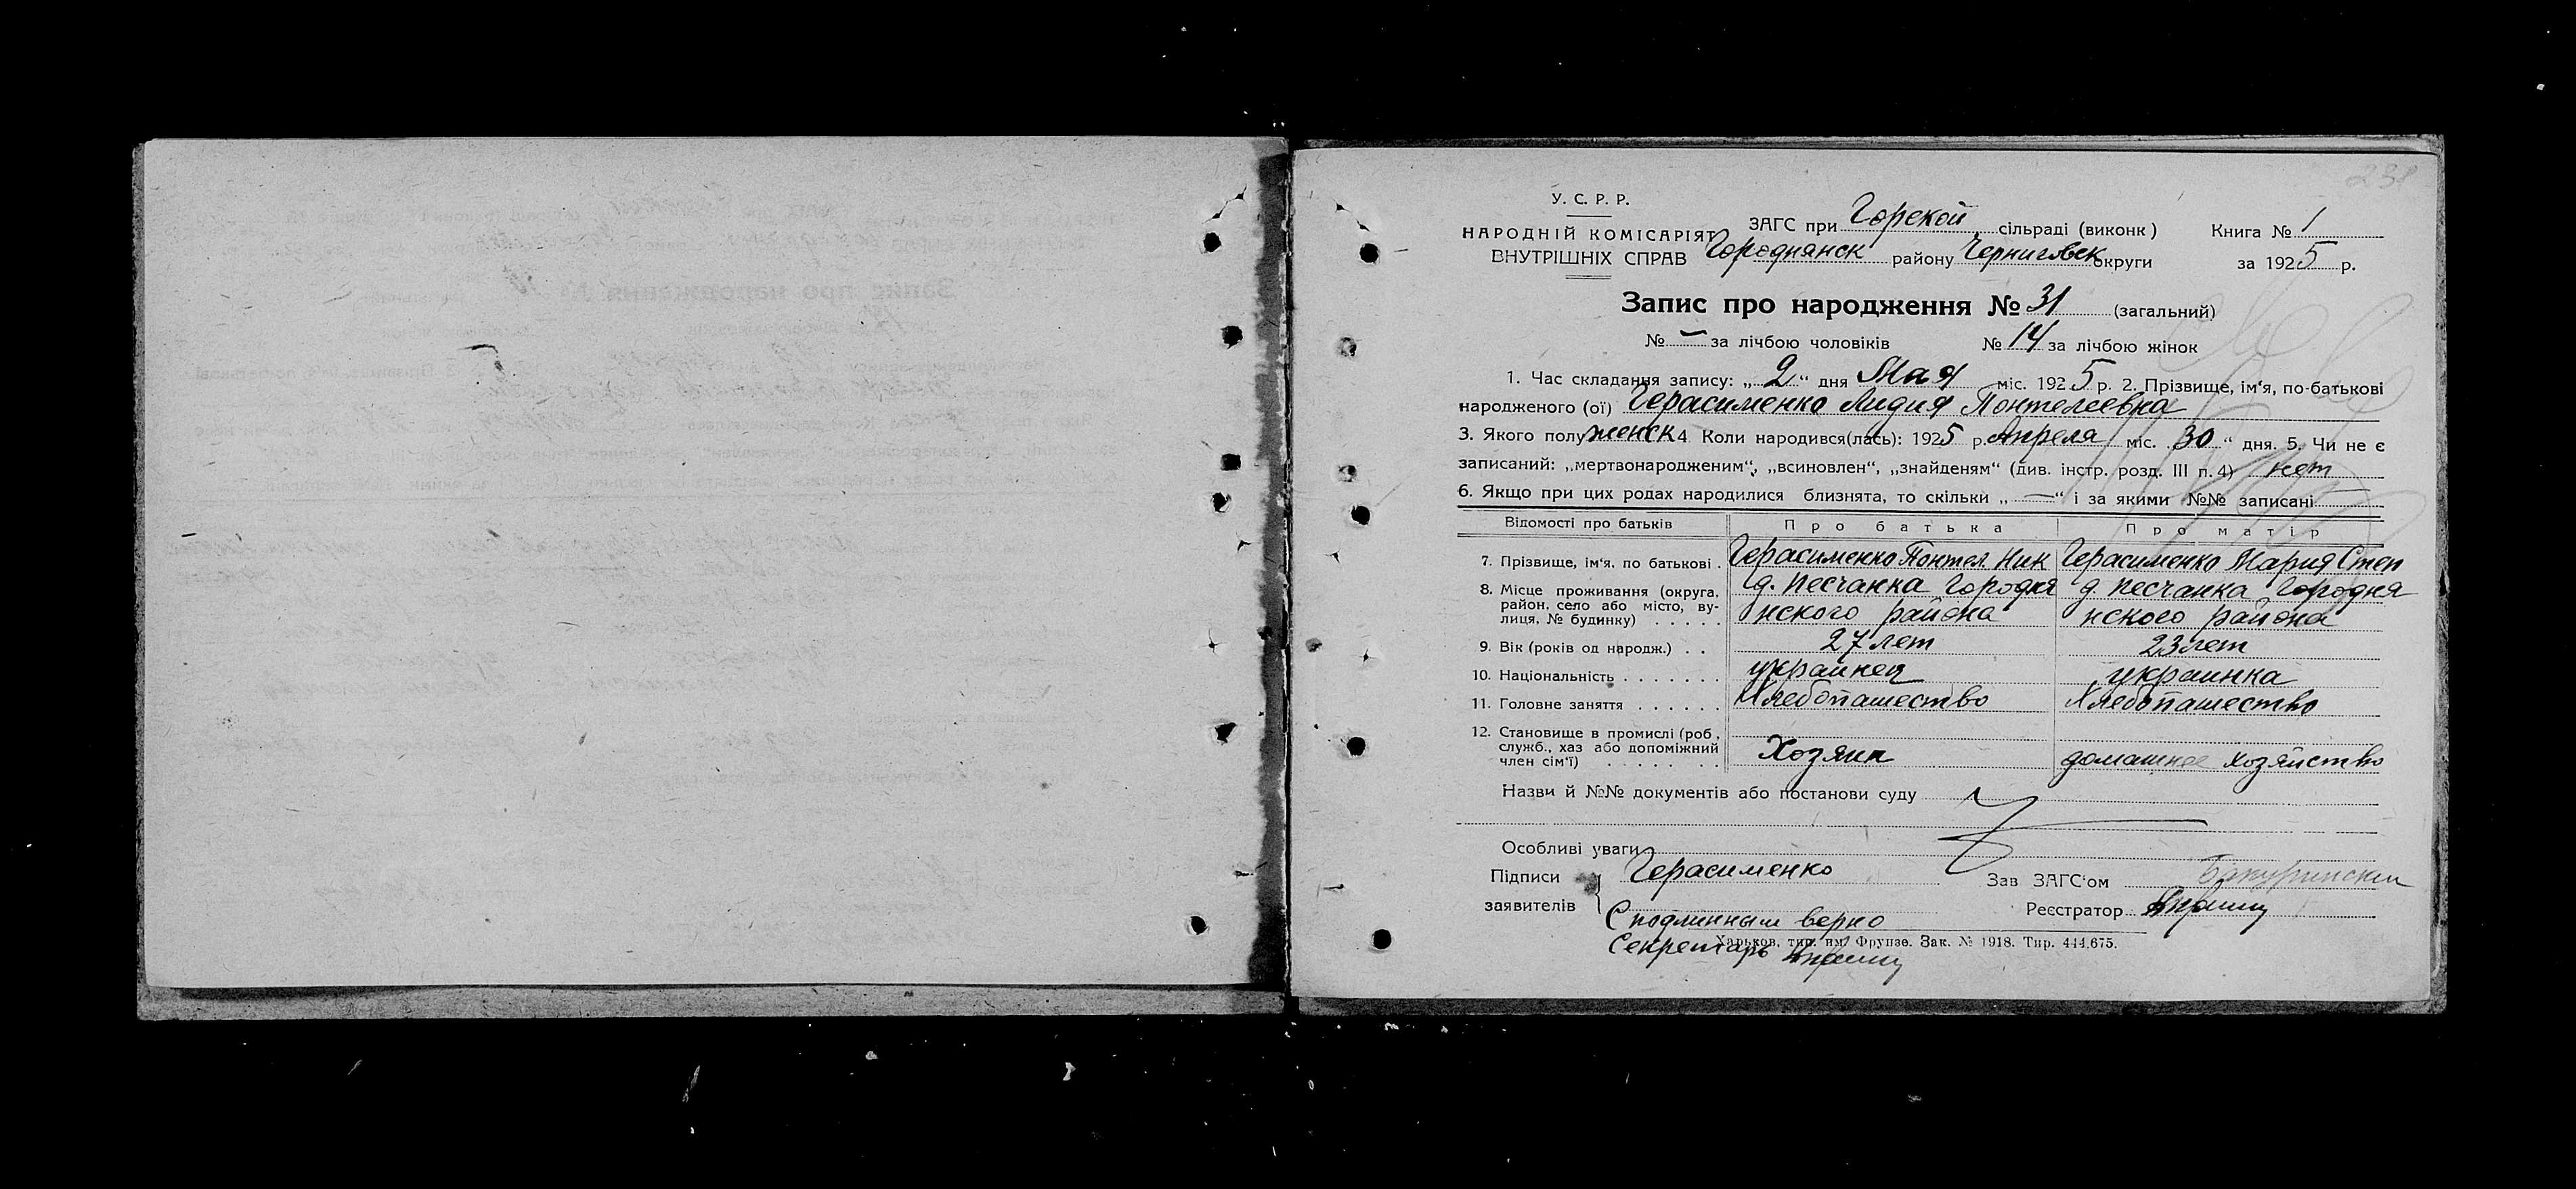 231
У. С. Р. Р.
НАРОДНІЙ КОМІСАРІЯТ
ВНУТРІШНІХ СПРАВ
ЗАГС при Горской сільраді (виконк)
Городнянск району Черниговск округи
Книга № 1
за 1925 р.
Запис про народження № 31 (загальний)
№ — за лічбою чоловіків № 14 за лічбою жінок
1. Час складання запису: „2“ дня Мая міс. 1925 р. 2. Прізвище, ім‘я, по-батькові
народженого (ої) Герасименко Лидия Понтелеевна
3. Якого полу женск 4 Коли народився(лась): 1925 р. Апреля міс. 30“ дня. 5. Чи не є
записаний: „мертвонародженим“, „всиновлен“, „знайденям“ (див. інстр. розд. III п. 4) нет
6. Якщо при цих родах народилися близнята, то скільки „—“ і за якими №№ записані
Відомості про батьків Про батька Про матір
7. Прізвище, ім‘я, по батькові . Герасименко Понтел. Ник Герасименко Мария Степ
8. Місце проживання (округа, д. Песчанка Городня д. Песчанка Городня
район, село або місто, ву-
лиця, № будинку) . . . . . нского района нского района
9. Вік (років од народж.) . . 27 лет 23 лет
10. Національність . . . . . . . украинец украинка
11. Головне заняття . . . . . . Хлебопашество Хлебопашество
12. Становище в промислі (роб.,
служб., хаз або допоміжний Хозяин домашнее хозяйство
член сім‘ї) . . . . . . . .
Назви й №№ документів або постанови суду
Особливі уваги
Підписи Герасименко Зав ЗАГС‘ом
заявителів Реєстратор
С подлинным верно
Секретарь
Харьков, тип. им. Фрунзе. Зак. № 1918. Тир. 444.675.